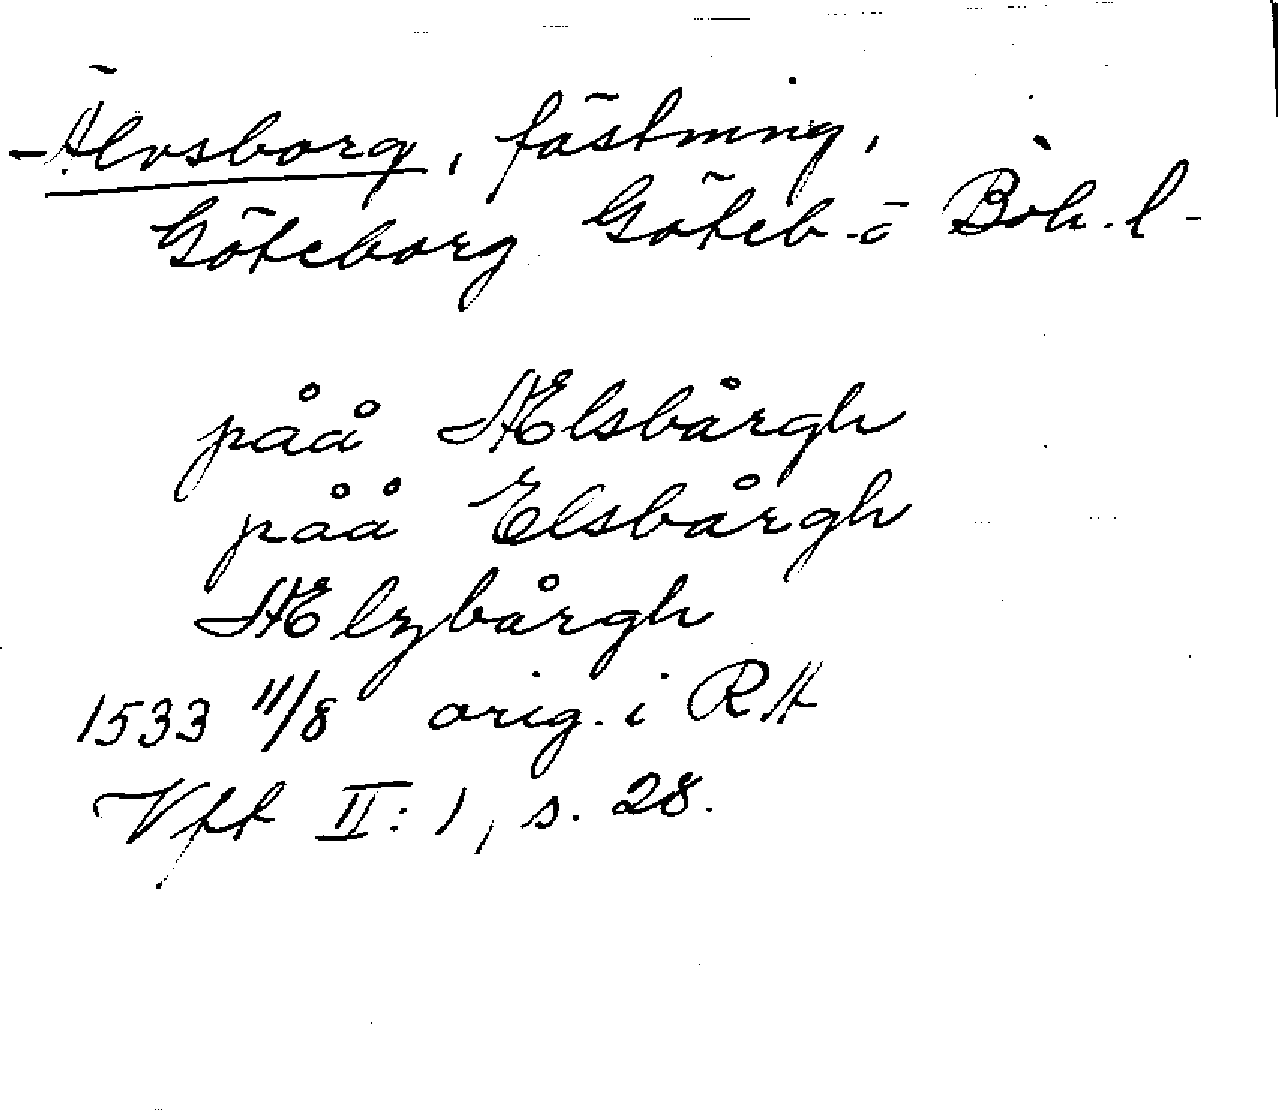 Älvsborg, fästning,
Göteborg Göteb. o Boh. l.
påå Ælsbårgh
påå Elsbårgh
Ælzbårgh
1533 11/8 orig. i RA
Vff II: 1, s. 28.